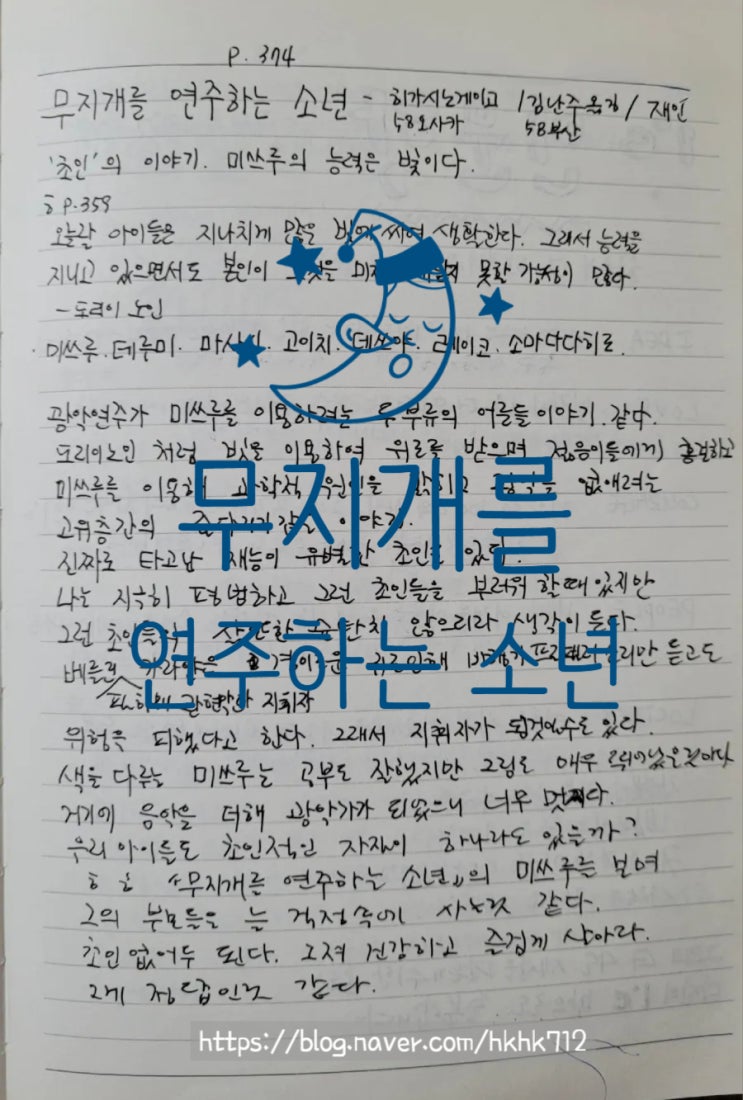 P. 374
무지개를 연주하는 소년 - 히가시노게이고 /김난주옮김/ 재인
58오사카 58부산
'초인'의 이야기. 미쓰루의 능력은 빛이다.
P.359
오늘날 아이들은 지나치게 많은 빛에 싸여 생활한다. 그래서 능력을
지니고 있으면서도 본인이 못할 가능성이 많다.
- 도리이 노인
미쓰루. 데루미. 고이치. 데쓰야. 레이코. 소마다다히로.
광악연주가 미쓰루를 이용하려는 두 부류의 어른들 이야기. 같다.
도리이노인 처럼 빛을 이용하여 위로를 받으며 젊음이들에게 홍보하고
미쓰루를 이용해 과학적 원인을 없애려는
고위층간의 이야기.
무지개를
진짜로 타고난 재능이 유별난 초인도 있다.
나는 지극히 평범하고 그런 초인들을 부러워 할때 있지만
그런 순탄치 않으리라 생각이 든다.
연주하는 소년
소리만 듣고도
관현악단 지휘자
위험을 피했다고 한다. 그래서 지휘자가 된것일수도 있다.
색을 다루는 미쓰루는 공부도 잘했지만 그림도 매우 뛰어났을것이다
거기에 음악을 더해 광악가가 되었으니 너무 멋지다.
우리 아이들도 초인적인 자질이 하나라도 있을까?
ㅎ ㅎ 《무지개를 연주하는 소년》의 미쓰루를 보며
그의 부모들은 늘 걱정속에 사는것 같다.
초인 없어두 된다. 그저 건강하고 즐겁게 살아라.
그게 정답인것 같다.
https://blog.naver.com/hkhk712